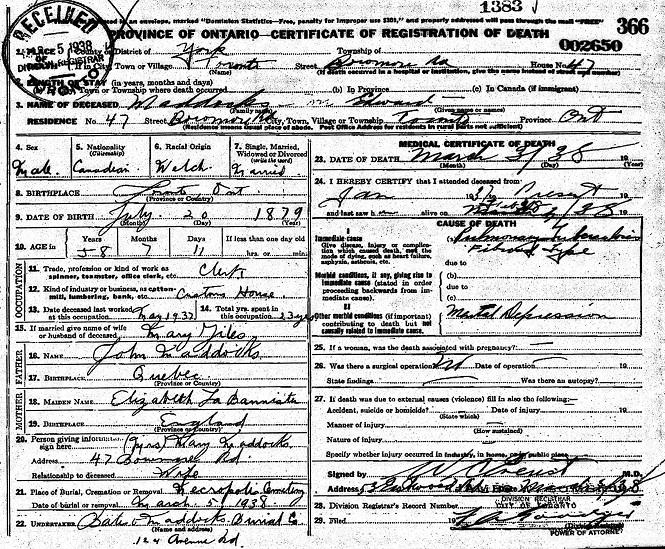 1383
in an envelope, marked "Dominion Statistics—Free, penalty for improper use $301," and properly addressed will pass through the mail "FREE"
366
PROVINCE OF ONTARIO—CERTIFICATE OF REGISTRATION OF DEATH
002650
RECEIVED
5 1938
County or District of York Township of
If in City, Town or Village Toronto Street House No. 47
(Name) (If death occurred in a hospital or institution, give the name instead of street and number)
LENGTH OF STAY (in years, months and days)
(a) Town or Township where death occurred (b) In Province (c) In Canada (if immigrant)
3. NAME OF DECEASED Maddocks Edward
(Family name) (Given name or names)
RESIDENCE No. 47 Street City, Town, Village or Township Toronto Province Ont
(Residence means usual place of abode. Post Office Address for residents in rural parts not sufficient)
4. Sex 5. Nationality (Citizenship) 6. Racial Origin 7. Single, Married, Widowed or Divorced (write the word)
Male Canadian Welch Married
8. BIRTHPLACE Toronto Ont
(Province or Country)
9. DATE OF BIRTH July 20 1879
(Month) (Day) (Year)
10. AGE in Years Months Days If less than one day old
58 7 11 hrs. or min.
OCCUPATION
11. Trade, profession or kind of work as spinner, teamster, office clerk, etc. Clerk
12. Kind of industry or business, as cotton-mill, lumbering, bank, etc. Customs House
13. Date deceased last worked at this occupation May 1937 14. Total yrs. spent in this occupation 23 yrs
15. If married give name of wife or husband of deceased Mary Giles
FATHER
16. NAME John Maddocks
17. BIRTHPLACE Quebec
(Province or Country)
MOTHER
18. MAIDEN NAME Elizabeth La Bannister
19. BIRTHPLACE England
(Province or Country)
20. Person giving information sign here (Mrs) Mary Maddocks
Address 47 Rd
Relationship to deceased Wife
21. Place of Burial, Cremation or Removal Necropolis Cemetery
Date of burial or removal March 5 1938
22. UNDERTAKER Bates & Maddocks Burial Co
(Name and address)
124 Avenue Rd
MEDICAL CERTIFICATE OF DEATH
23. DATE OF DEATH March 38
(Month) (Day)
24. I HEREBY CERTIFY that I attended deceased from
Jan 19 Present
and last saw h alive on 38
CAUSE OF DEATH
I
Immediate cause
Give disease, injury or complication which caused death, not the mode of dying, such as heart failure, asphyxia, asthenia, etc.
Pulmonary Tuberculosis
Fibroid Type
due to
Morbid conditions, if any, giving rise to immediate cause (stated in order proceeding backwards from immediate cause).
(b)
due to
(c)
II
Other morbid conditions (if important) contributing to death but not causally related to immediate cause.
Mental Depression
25. If a woman, was the death associated with pregnancy?
26. Was there a surgical operation? Date of operation
State findings Was there an autopsy?
27. If death was due to external causes (violence) fill in also the following:—
Accident, suicide or homicide? Date of injury 19
(State which)
Manner of injury
(How sustained)
Nature of injury
Specify whether injury occurred in industry, in home, or in public place
Signed by M.D.
Address
28. Division Registrar's Record Number
DIVISION REGISTRAR
CITY OF TORONTO
29. Filed 19
POWER OF ATTORNEY